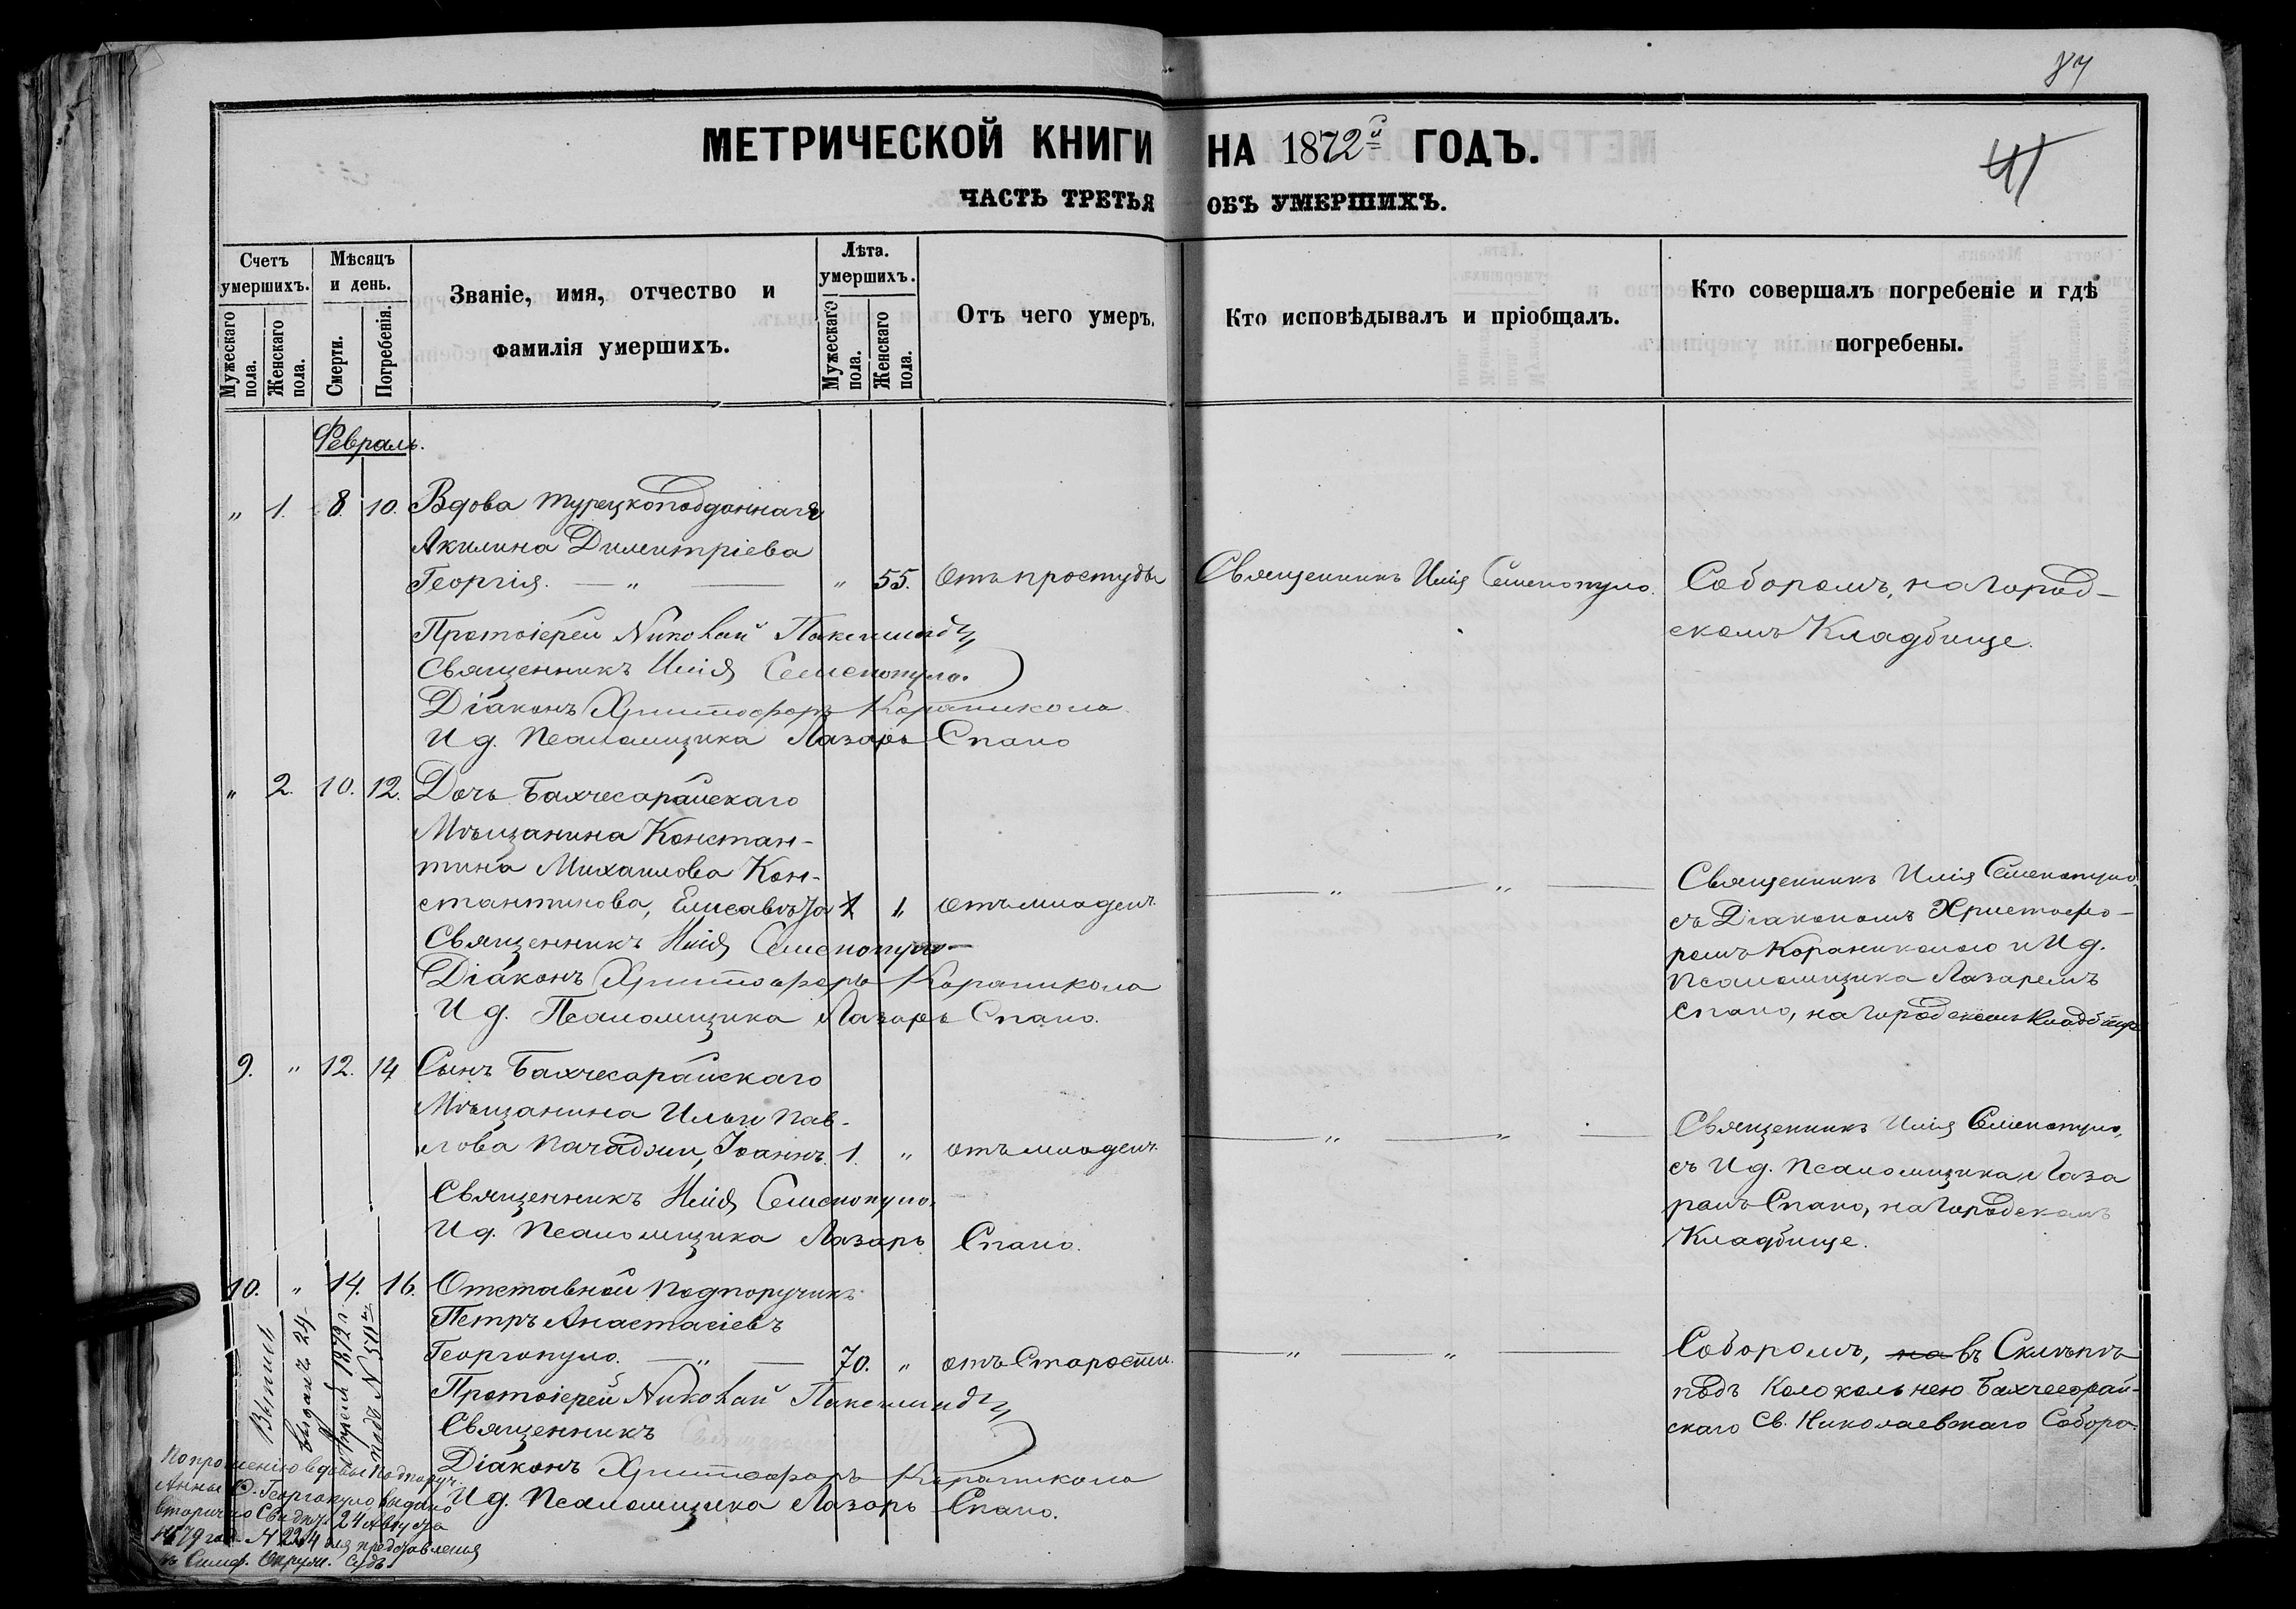 87
41
МЕТРИЧЕСКОЙ КНИГИ НА 1872й ГОДЪ.
ЧАСТЬ ТРЕТЬЯ ОБЪ УМЕРШИХЪ.
Счетъ умершихъ.
Мужескаго пола.
Женскаго пола.
Мѣсяцъ и день.
Смерти.
Погребенія.
Званіе, имя, отчество и
фамилія умершихъ.
Лѣта. умершихъ.
Мужескаго пола.
Женскаго пола.
Отъ чего умеръ.
Кто исповѣдывалъ и пріобщалъ.
Кто совершалъ погребеніе и гдѣ
погребены.
Февраль.
" 1. 8. 10. Вдова турецкоподданнаго
Акилина Димитріева
Георгія. — " — " 55. Отъ простуды Священникъ Илія Семенопуло. Соборомъ, на Город-
скомъ Кладбище.
Протоіерей Николай
Священникъ Илія Семенопуло.
Діаконъ Христофоръ Караникола
И д. Псаломщика Лазарь Спано
" 2. 10. 12. Дочь Бахчесарайскаго
Мѣщанина Констан-
тина Михаилова Кон-
стантинова, Елисавета 1 " отъ младенч. — " — " — Священникъ Илія Семенопуло
съ Діакономъ Христофо-
ромъ Караниколою и И д.
Псаломщика Лазаремъ
Спано, на Городскомъ Кладбище
Священникъ Илія Семенопуло
Діаконъ Христофоръ Караникола
И д. Псаломщика Лазарь Спано.
9. " 12. 14 Сынъ Бахчесарайскаго
Мѣщанина Ильи Пав-
лова Пачаджи, Іоаннъ. 1. " отъ младенч. — " — " — Священникъ Илія Семенопуло,
съ И д. Псаломщика Лаза
ремъ Спано, на Городскомъ
Кладбище.
Священникъ Илія Семенопуло.
И д. Псаломщика Лазарь Спано.
10. " 14. 16. Отставной Подпоручикъ
Петръ Анастасіевъ
Георгопуло. — " — 70. " отъ Старости. — " — " — Соборомъ, на въ Склѣпѣ
подъ Колокольнею Бахчесорай-
скаго Св. Николаевскаго Собора.
Протоіерей Николай
Священникъ
Діаконъ Христофоръ Караникола
И д. Псаломщика Лазарь Спано.
выданъ 24
Апрѣля 1872 г.
По прошенію вдовы Подпоруч.
Анны Ѳ. Георгопуло, выдано
вторично Свидѣт. 24 Августа
1879 год. № 224 для представленія
въ Симф. Окруж. Судъ.